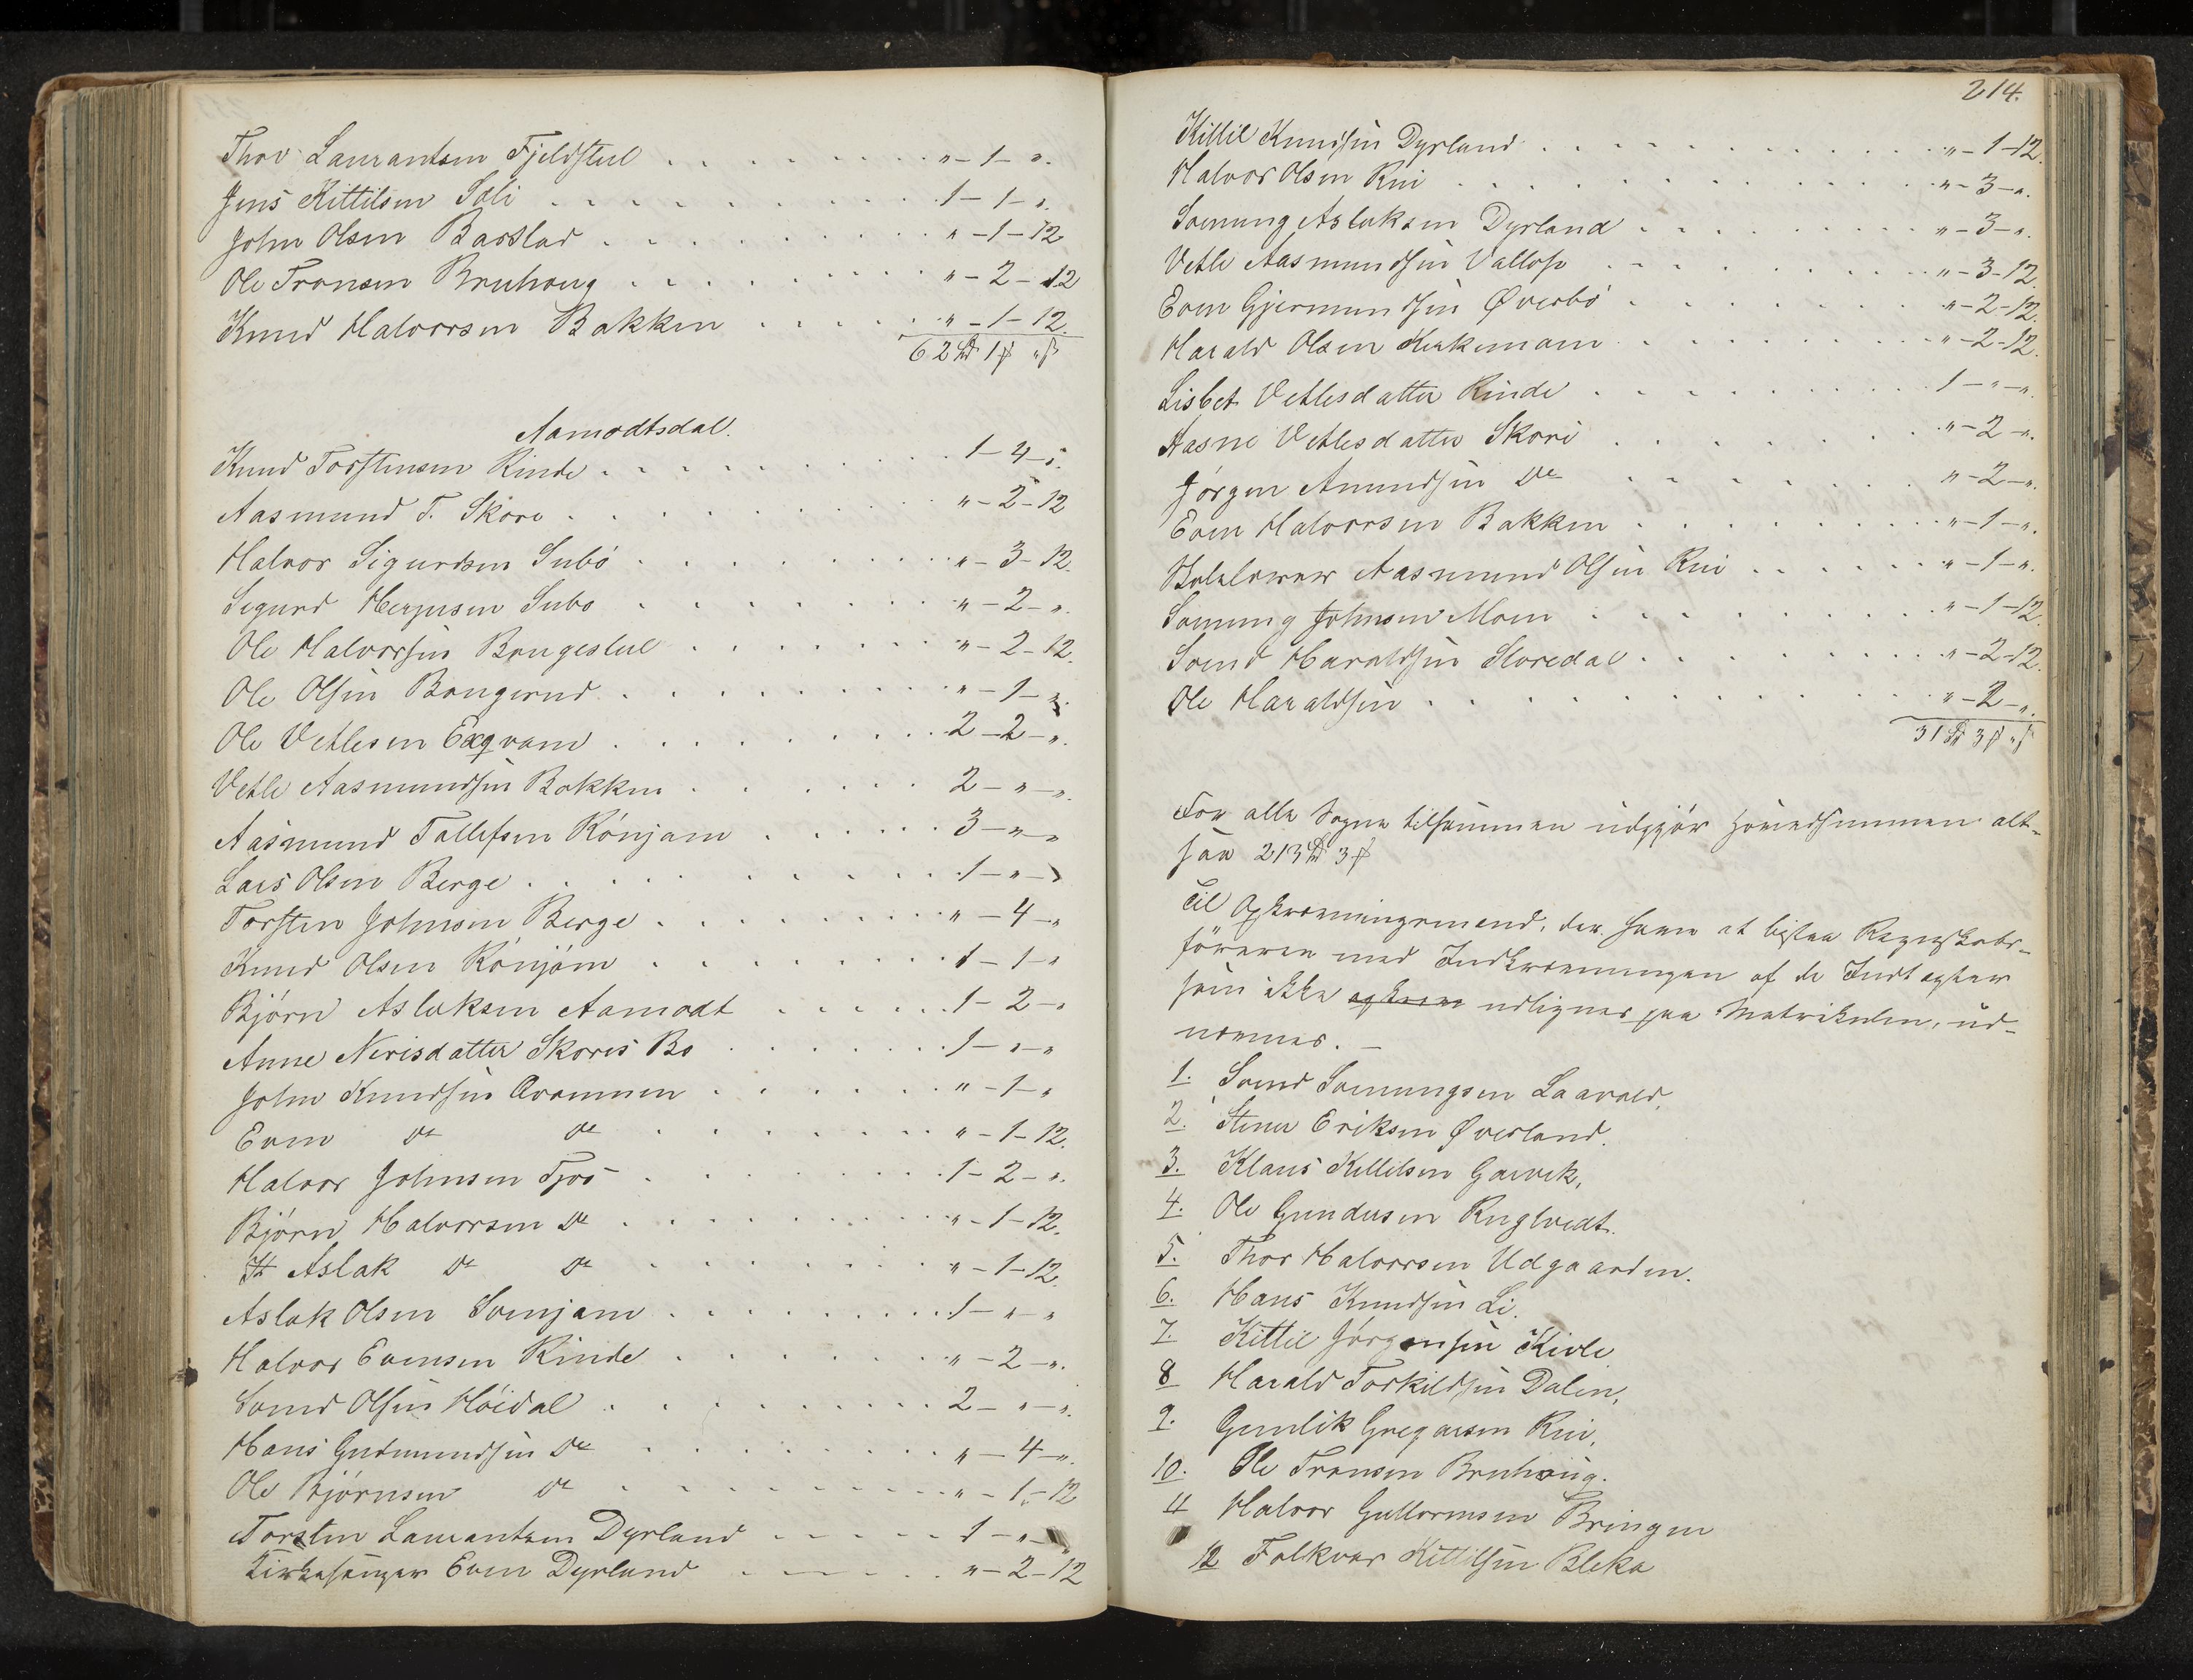 Thov Laurantsen Fjeldstul . . . . . . . . „ - 1 - „.
Jens Kittilsen Sóli . . . . . . . . . . 1 - 1 - „.
John Olsen Baeslad . . . . . . . . . „ - 1 - 12
Ole Transen Bruhaug . . . . . . . . „ - 2 - 12
Knud Halvorsen Bakken . . . . . . „ - 1 - 12.
62 1 „
Aamodtsdal.
Knud Torstensen Rinde . . . . . . . . . 1 - 4 - „.
Aasmund T. Skore . . . . . . . . . „ - 2 - 12
Halvor Sigurdsen Subö . . . . . . . . „ - 3 - 12.
Sigurd Herjusen Subo . . . . . . . . „ - 2 - „.
Ole Halvorsen Bougestul . . . . . . . „ - 2 - 12.
Ole Olsen Bougerud . . . . . . . . „ - 1 - „.
Ole Vetlesen . . . . . . . . . 2 - 2 - „.
Vetle Aasmundsen Bakken . . . . . . . 2 - „ - „.
Aasmund Tallefsen Rónjam . . . . . . 3 - „ - „
Lars Olsen Berge . . . . . . . . . . 1 - „ - „
Torsten Johnsen Berge . . . . . . . . „ - 4 - „
Knud Olsen Rónjóm . . . . . . . . 1 - 1 - „
Bjórn Aslaksen Aamodt . . . . . . 1 - 2 - „
Anne Nerisdatter Skores Bo . . . . . . . 1 - „ - „
John Knudsen . . . . . . „ - 1 - „
Even do do . . . . . . . . „ - 1 - 12.
Halvor Johnsen Tjós . . . . . . . 1 - 2 - „.
Bjórn Halvorsen do . . . . . . . . „ - 1 - 12.
Aslak do do . . . . . . . . „ - 1 - 12.
Aslak Olsen Svenjam . . . . . . . . 1 - „ - „
Halvor Evensen Rinde . . . . . . . „ - 2 - „.
Svend Olsen Höidal . . . . . . . . . 2 - „ - „.
Hans Gudmundsen do . . . . . . . . . „ - 4 - „.
Ole Björnsen do . . . . . . . . . „ - 1 - 12
Torsten Laurantsen Dyrland . . . . . 1 - „ - „
Kirkesanger Even Dyrland . . . . . . „ - 2 - 12
214.
Kittil Knudsen Dyrland . . . . . . . . . „ - 1 - 12.
Halvor Olsen Rui . . . . . . . . . . „ - 3 - „.
Sveinung Aslaksen Dyrland . . . . . . . „ - 3 - „.
Vetle Aasmundsen Vallose . . . . . . . „ - 3 - 12.
Even Gjermundsen Øverbó . . . . . . . „ - 2 - 12.
Harald Olsen . . . . . . . „ - 2 - 12.
Lisbet Vetlesdatter Rinde . . . . . . . 1 - „ - „.
Aasne Vetlesdatter Skore . . . . . . . „ - 2 - „.
Jörgen Amundsen do . . . . . . . „ - 2 - „.
Even Halvorsen Bakken . . . . . . . . „ - 1 - „.
Skolelærer Aasmund Olsen Rui . . . . . . „ - 1 - „.
Sveinung Johnsen Moen . . . . . . . „ - 1 - 12.
Svend Haraldsen Storedal . . . . . . . . „ - 2 - 12.
Ole Haraldsen . . . . . . . . . . „ - 2 - „.
31 3 „
For alle Sogne tilsammen udgjör Hovedsummen alt-
saa 213 3
Til Opkrævningsmænd, der have at bistaa Regnskabs-
föreren med Indkrævningen af de Indtægter
som ikke opkræves udlignes paa Matrikulen, ud-
nævnes. —
1. Svend Sveinungsen Laavald,
2. Stener Eriksen Øverland.
3. Klaus Kittilsen Garvik,
4. Ole Gundersen Ruglvedt.
5. Thor Halvorsen Udgaarden.
6. Hans Knudsen Li.
7. Kittil Jörgensen Kivle
8 Harald Torkildsen Dalen,
9. Gunlik Gregarsen Rui,
10. Ole Transen Bruhaug.
11 Halvor Guttormsen Bringen
12 Folkvar Kittilsen Bleka